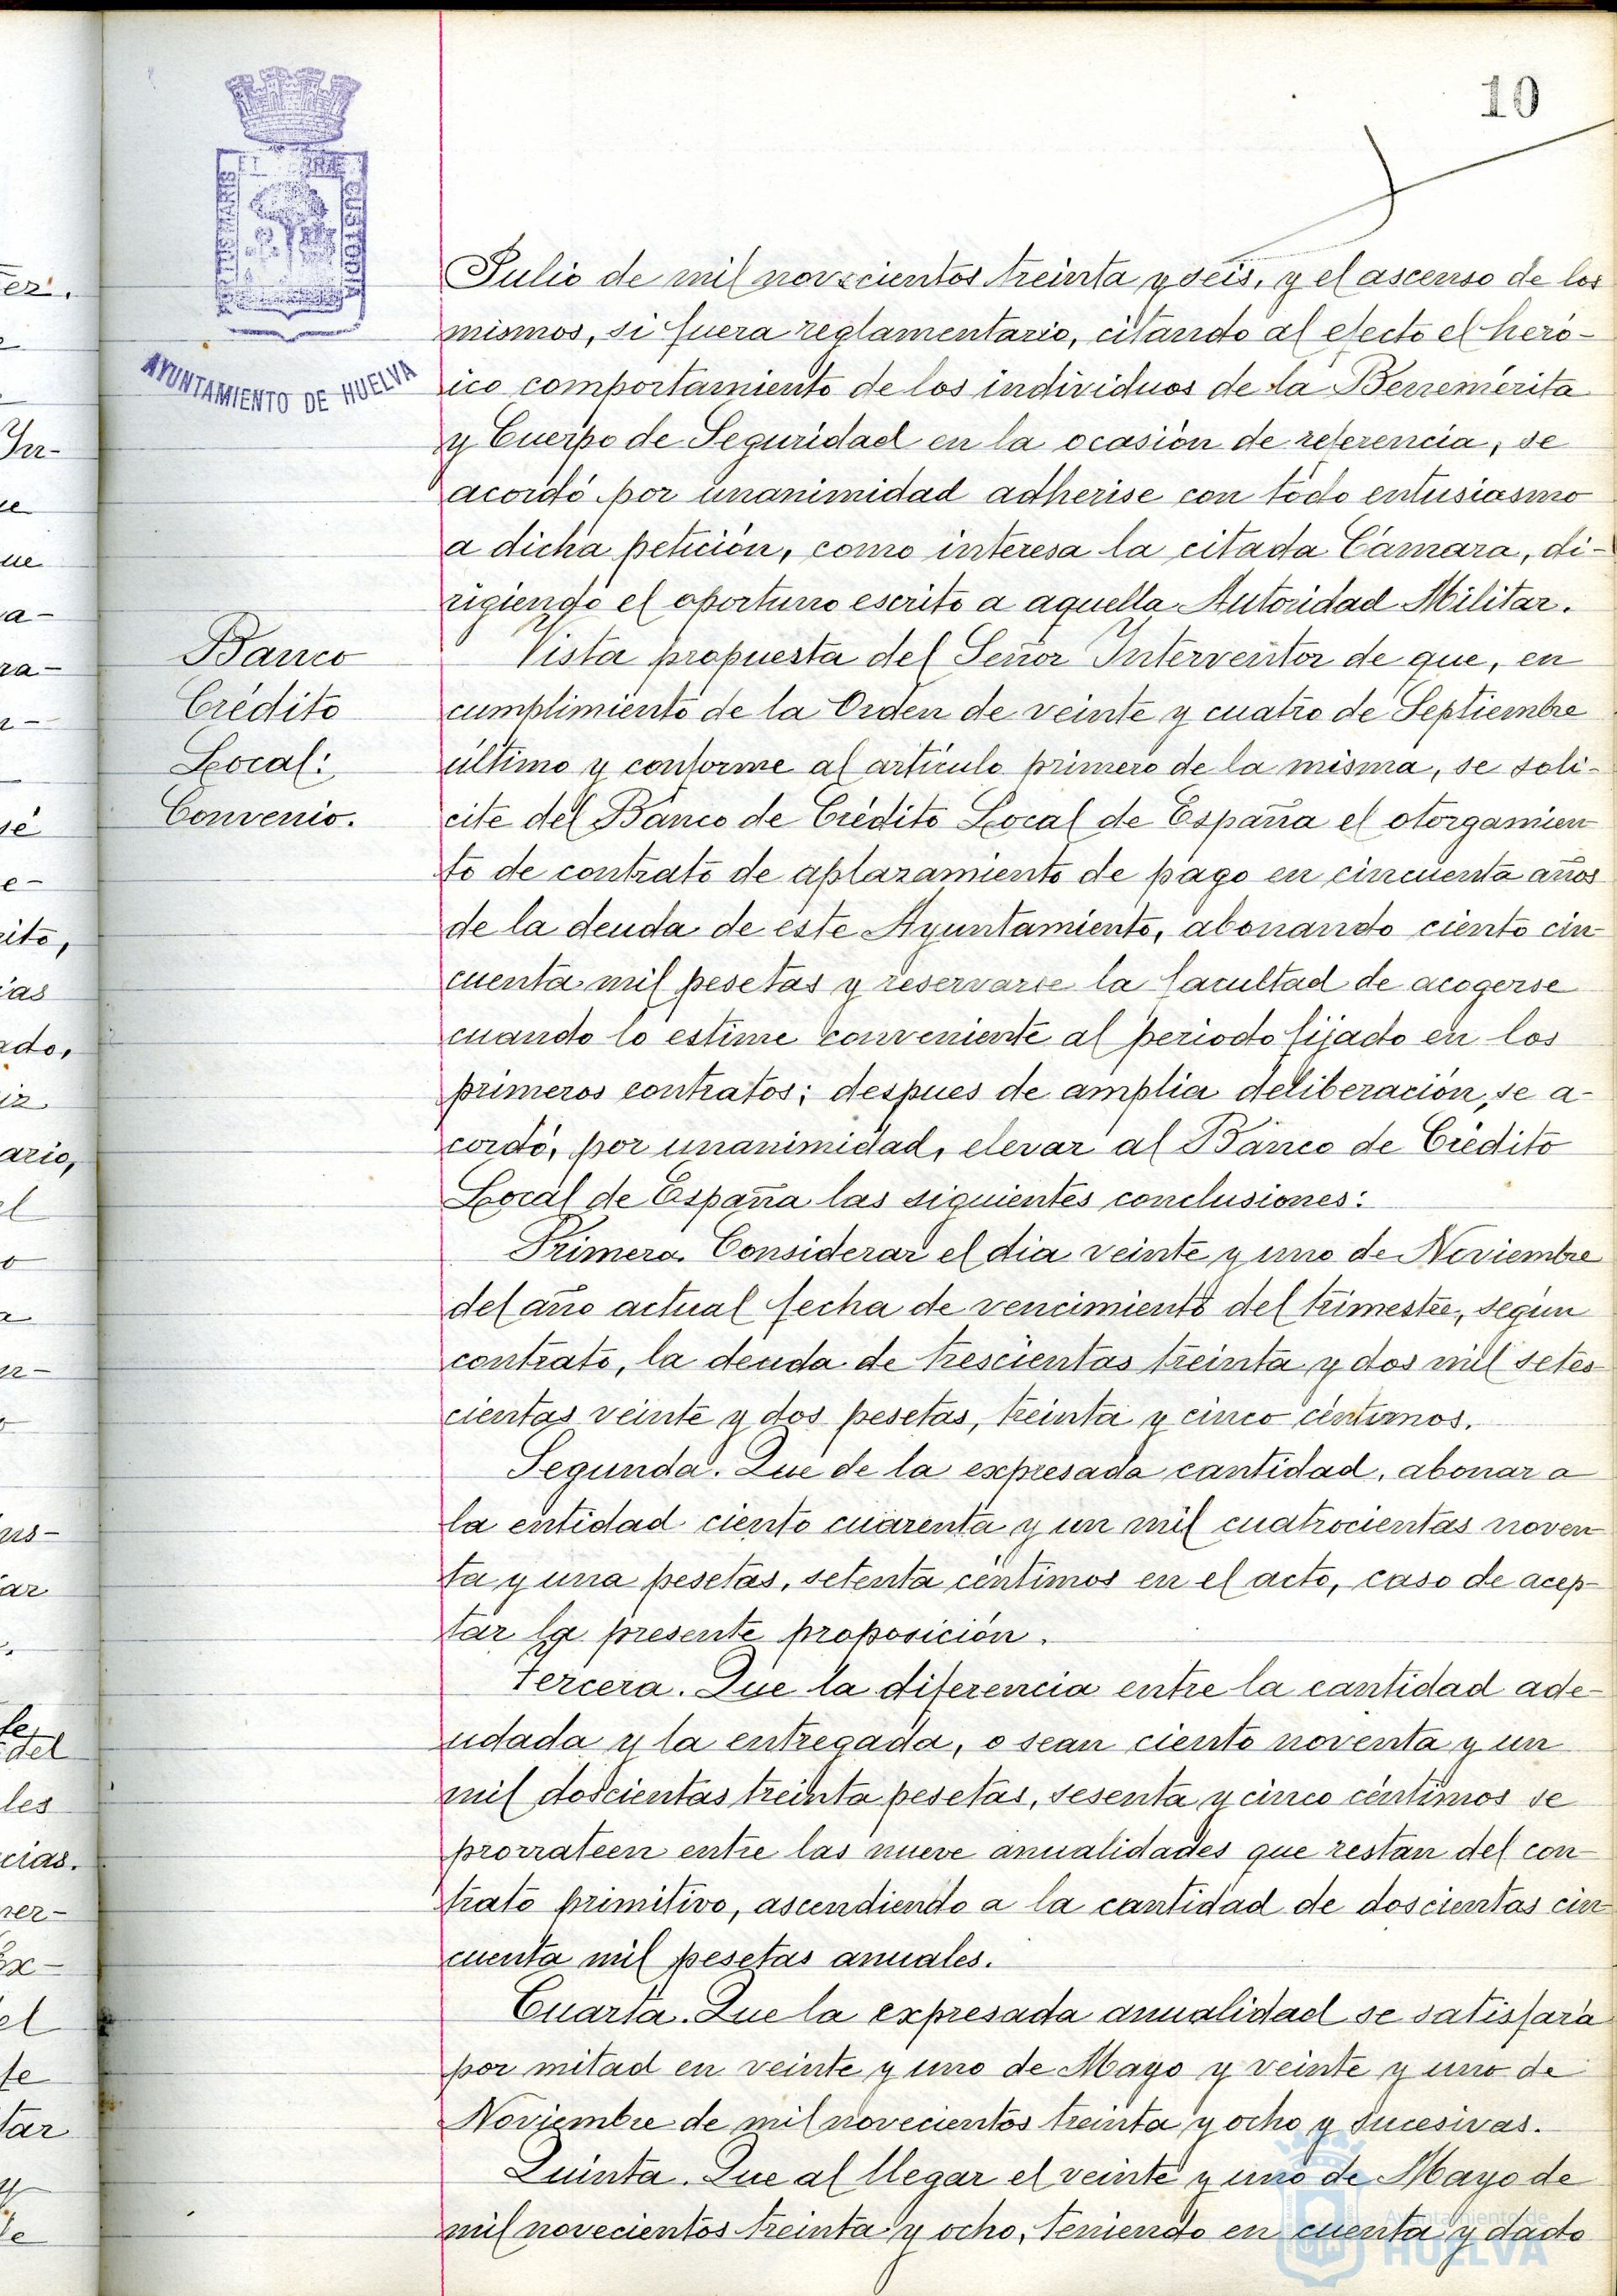 10
AYUNTAMIENTO DE HUELVA
Julio de mil novecientos treinta y seis, y el ascenso de los
mismos, si fuera reglamentario, citando al efecto el heró-
ico comportamiento de los individuos de la Benemérita
y Cuerpo de Seguridad en la ocasión de referencia, se
acordó por unanimidad adherise con todo entusiasmo
a dicha petición, como interesa la citada Cámara, di-
rigiendo el oportuno escrito a aquella Autoridad Militar.
Banco
Crédito
Local:
Convenio.
Vista propuesta del Señor Interventor de que, en
cumplimiento de la Orden de veinte y cuatro de Septiembre
último y conforme al artículo primero de la misma, se soli-
cite del Banco de Crédito Local de España el otorgamien
to de contrato de aplazamiento de pago en cincuenta años
de la deuda de este Ayuntamiento, abonando ciento cin-
cuenta mil pesetas y reservarse la facultad de acogerse
cuando lo estime conveniente al periodo fijado en los
primeros contratos; despues de amplia deliberación, se a-
cordó, por unanimidad, elevar al Banco de Crédito
Local de España las siguientes conclusiones:
Primera. Considerar el dia veinte y uno de Noviembre
del año actual fecha de vencimiento del trimestre, según
contrato, la deuda de trescientas treinta y dos mil setes
cientas veinte y dos pesetas, treinta y cinco céntimos.
Segunda. Que de la expresada cantidad, abonar a
la entidad ciento cuarenta y un mil cuatrocientas noven
ta y una pesetas, setenta céntimos en el acto, caso de acep-
tar la presente proposición.
Tercera. Que la diferencia entre la cantidad ade-
udada y la entregada, o sean ciento noventa y un
mil doscientas treinta pesetas, sesenta y cinco céntimos se
prorrateen entre las nueve anualidades que restan del con-
trato primitivo, ascendiendo a la cantidad de doscientas cin
cuenta mil pesetas anuales.
Cuarta. Que la expresada anualidad se satisfará
por mitad en veinte y uno de Mayo y veinte y uno de
Noviembre de mil novecientos treinta y ocho y sucesivas.
Quinta. Que al llegar el veinte y uno de Mayo de
mil novecientos treinta y ocho, teniendo en cuenta y dado
Ayuntamiento de
HUELVA